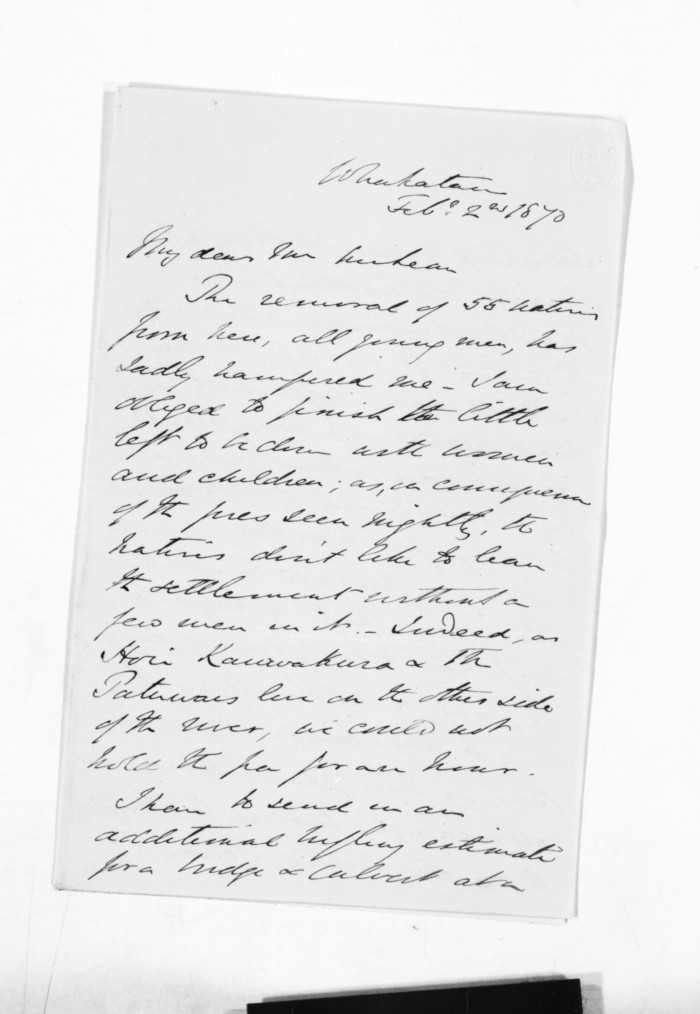 Whakatane
Feby 2nd 1870
My dear Mr McLean
The removal of 55 natives
from here, all young men, has
sadly hampered me – I am
obliged to finish the little
left to be done with women
and children; as, in consequence
of the fires seen nightly, the
natives don't like to leave
the settlement without a
few men in it. – Indeed, as
Hori Kawakura & the
Patuwais live on the other side
of the river, we could not
hold the pa for an hour.
I have to send in an
additional trifling estimate
for a bridge & culvert at a